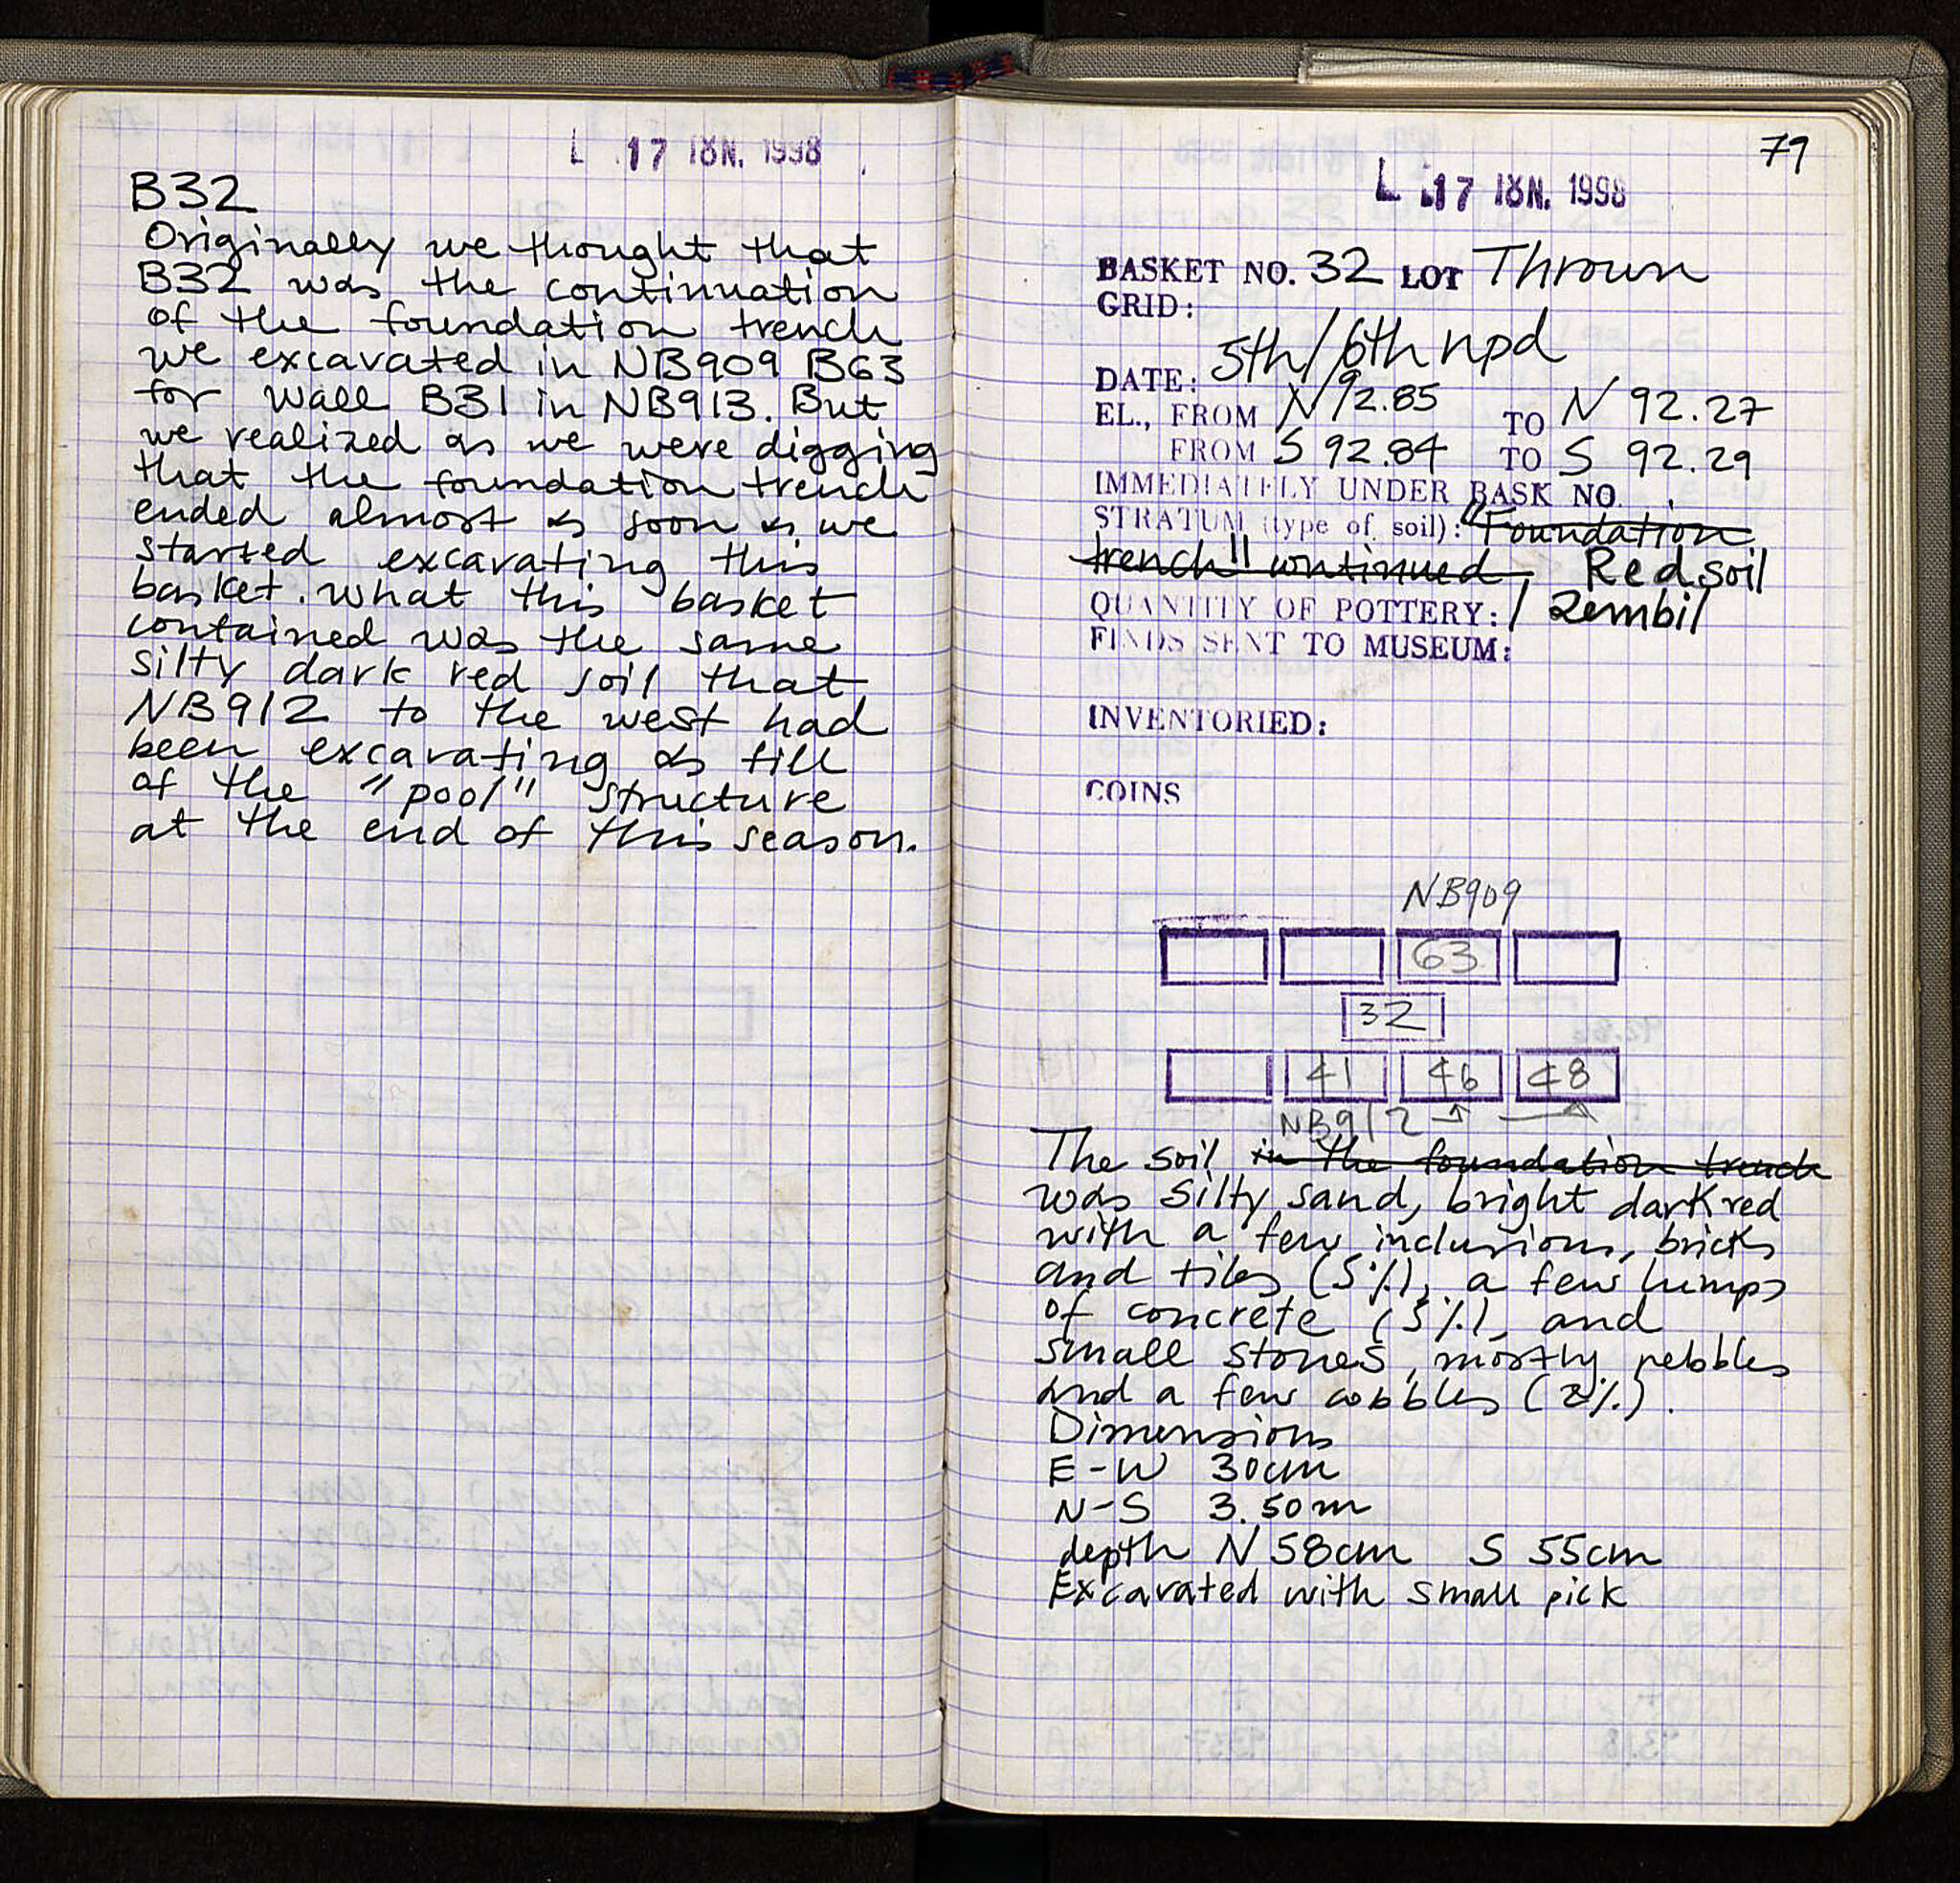 L 17 ΙΟΥΝ. 1998
B32
Originally we thought that
B32 was the continuation
of the foundation trench
we excavated in NB909 B63
for wall B31 in NB913. But
we realized as we were digging
that the foundation trench
ended almost as soon as we
started excavating this
basket. what this basket
contained was the same
silty dark red soil that
NB912 to the west had
been excavating as fill
of the "pool" structure
at the end of this season.
79
L 17 ΙΟΥΝ. 1998
BASKET NO. 32 LOT Thrown
GRID:
DATE: 5th/6th npd
EL., FROM N 92.85 TO N 92.27
FROM S 92.84 TO S 92.29
IMMEDIATELY UNDER BASK NO.
STRATUM (type of soil): "Foundation
trench" continued, Red soil
QUANTITY OF POTTERY: 1 zembil
FINDS SENT TO MUSEUM:
INVENTORIED:
COINS
NB909
63
32
41 46 48
NB912
The soil in the foundation trench
was silty sand, bright dark red
with a few inclusions, bricks
and tiles (5%), a few lumps
of concrete (5%), and
small stones, mostly pebbles
and a few cobbles (2%).
Dimensions
E-W 30cm
N-S 3.50m
depth N 58cm S 55cm
Excavated with small pick